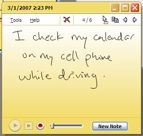 3/1/2007 2:23 PM
Tools Help 4/6
I check my calendar
on my cell phone
while driving.
New Note